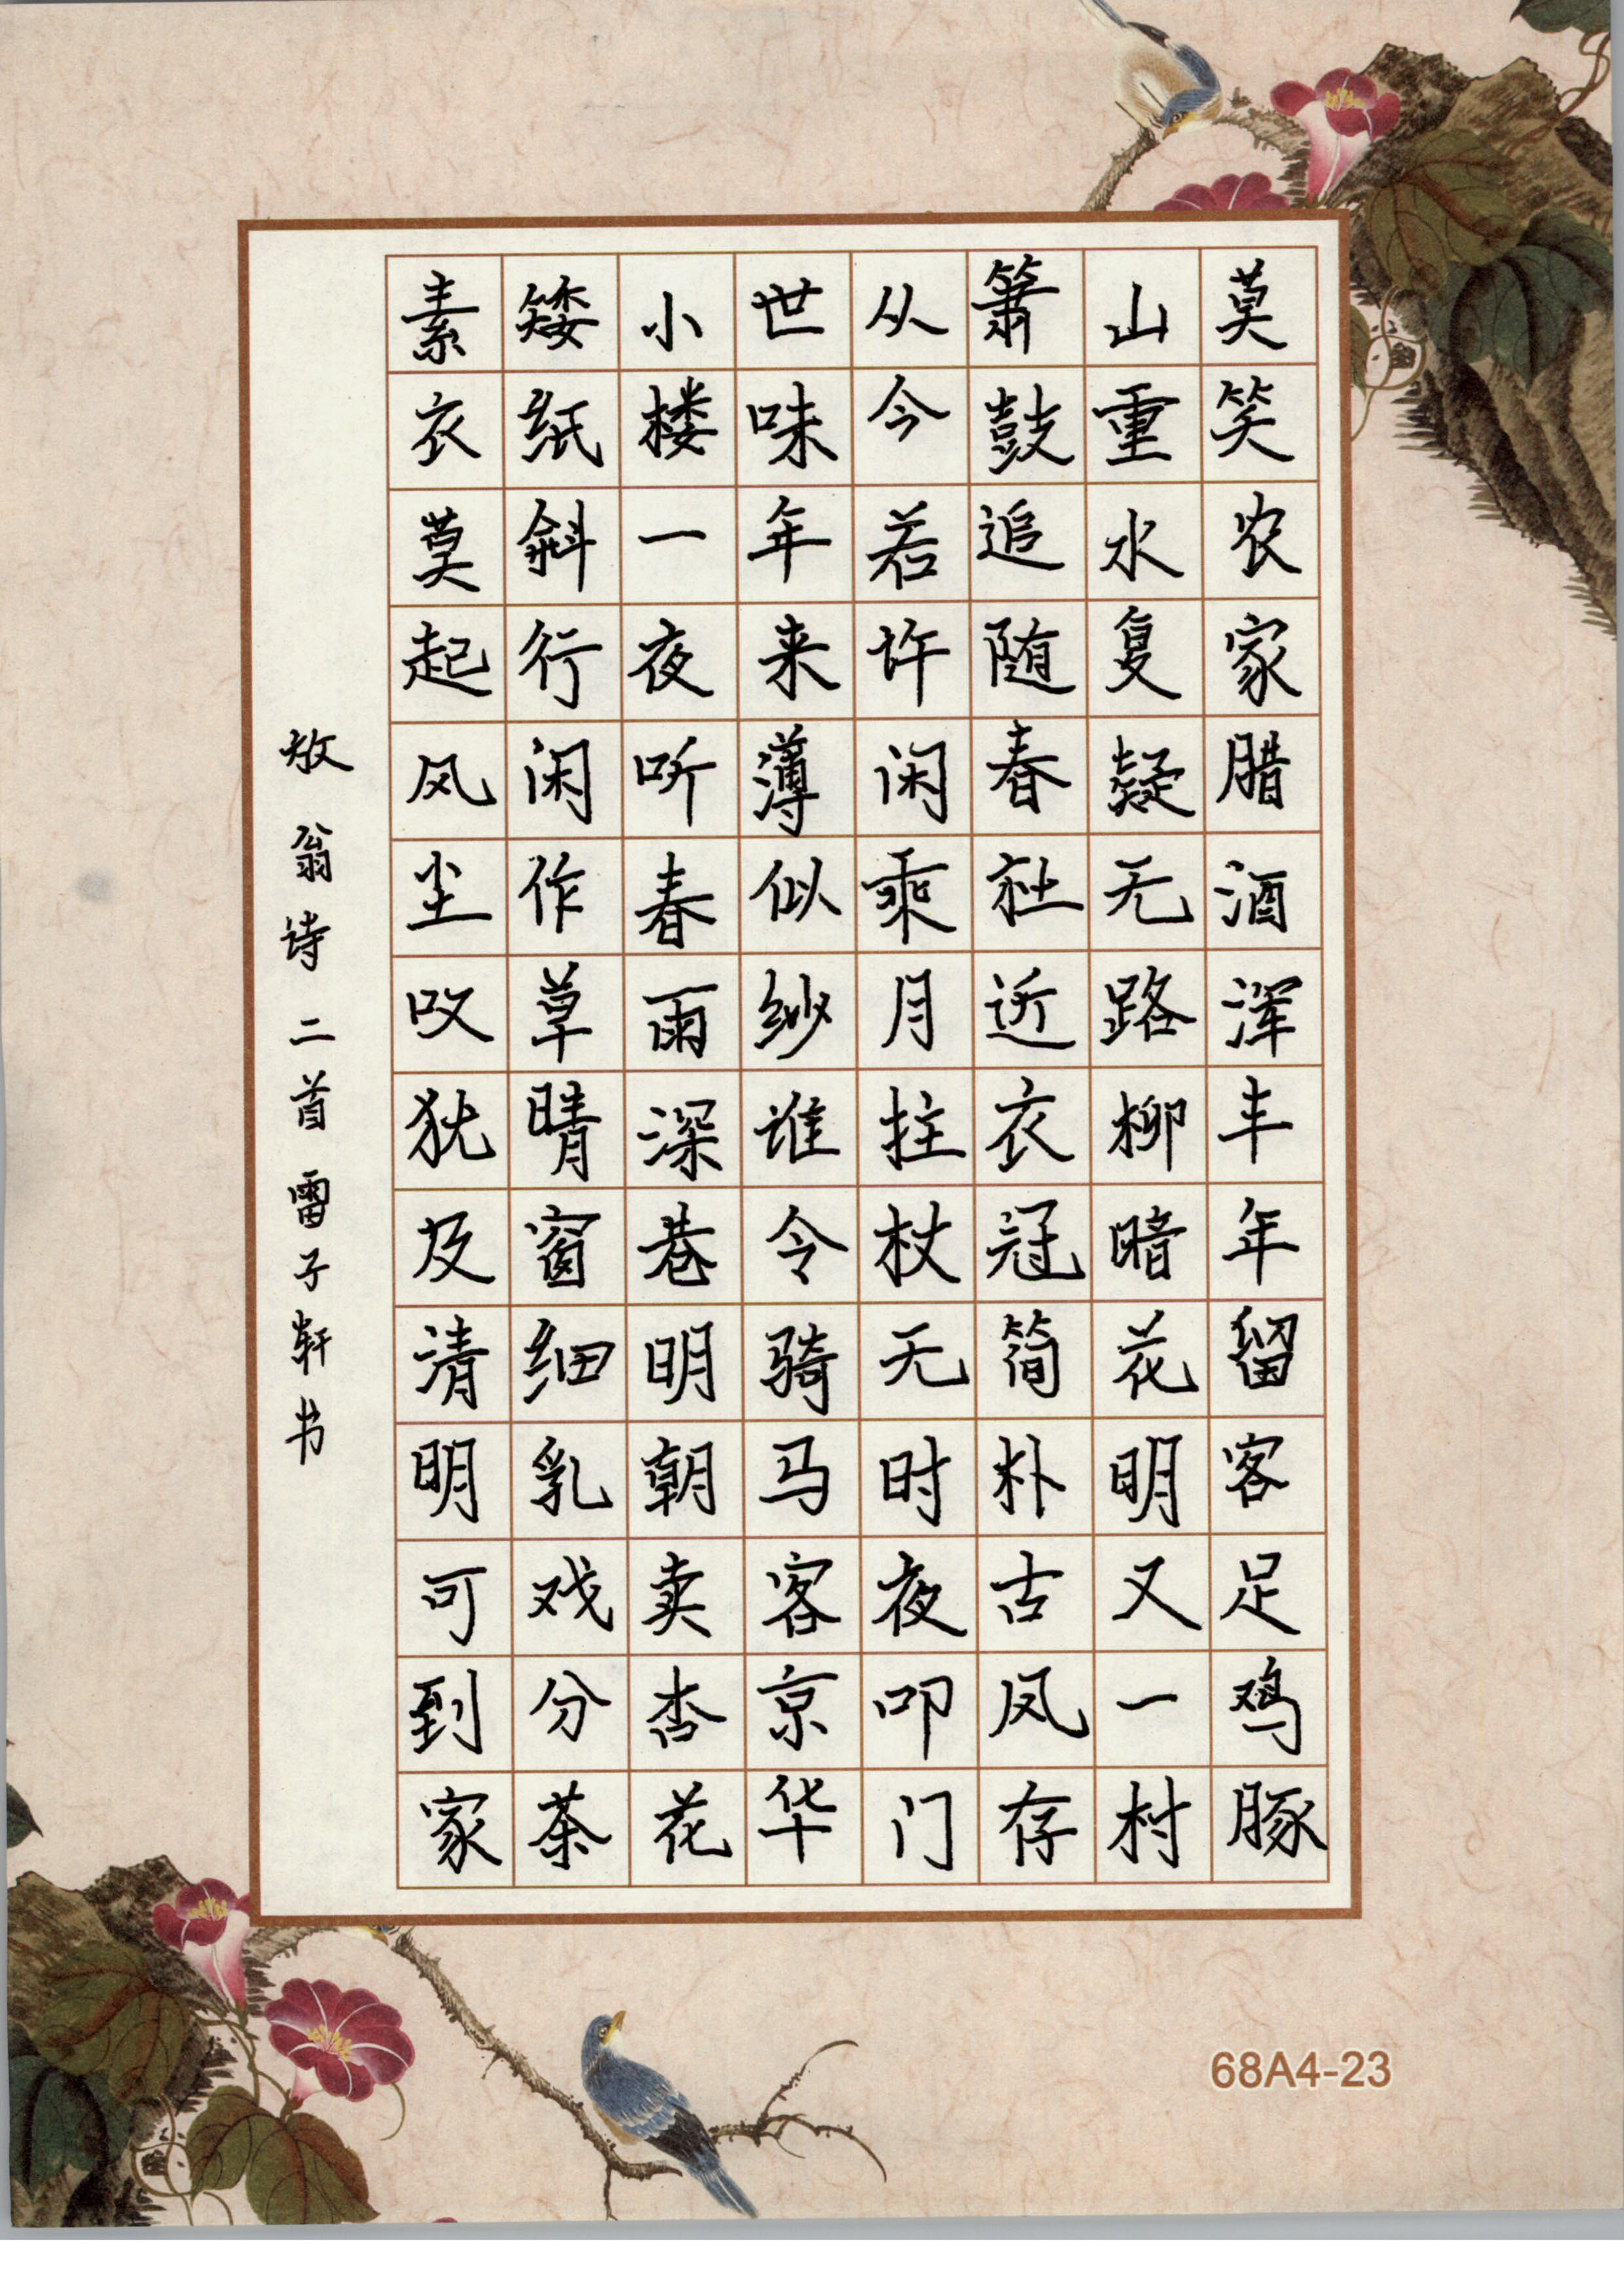 莫笑农家腊酒浑丰年留客足鸡豚
山重水复疑无路柳暗花明又一村
箫鼓追随春社近衣冠简朴古风存
从今若许闲乘月拄杖无时夜叩门
世味年来薄似纱谁令骑马客京华
小楼一夜听春雨深巷明朝卖杏花
矮纸斜行闲作草晴窗细乳戏分茶
素衣莫起风尘叹犹及清明可到家
放翁诗二首 雷子轩书
68A4-23